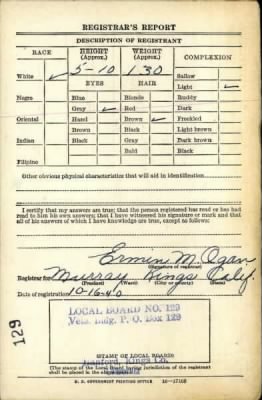 REGISTRAR'S REPORT
DESCRIPTION OF REGISTRANT
RACE HEIGHT (Approx.) WEIGHT (Approx.) COMPLEXION
5-10 130
White ✓ EYES HAIR Sallow
Light ✓
Negro Blue Blonde Ruddy
Gray ✓ Red Dark
Oriental Hazel Brown ✓ Freckled
Brown Black Light brown
Indian Black Gray Dark brown
Bald Black
Filipino
Other obvious physical characteristics that will aid in identification
I certify that my answers are true; that the person registered has read or has had
read to him his own answers; that I have witnessed his signature or mark and that
all of his answers of which I have knowledge are true, except as follows:
Ermin M. Ogan
(Signature of registrar)
Registrar for Murray Kings Calif.
(Precinct) (Ward) (City or county) (State)
Date of registration 10-16-40
129
LOCAL BOARD NO. 129
Vets. Bldg. P. O. Box 129
Hanford, Kings Co.
STAMP OF LOCAL BOARD
(The stamp of the Local Board having jurisdiction of the registrant
shall be placed in the above space.)
U. S. GOVERNMENT PRINTING OFFICE 16—17105